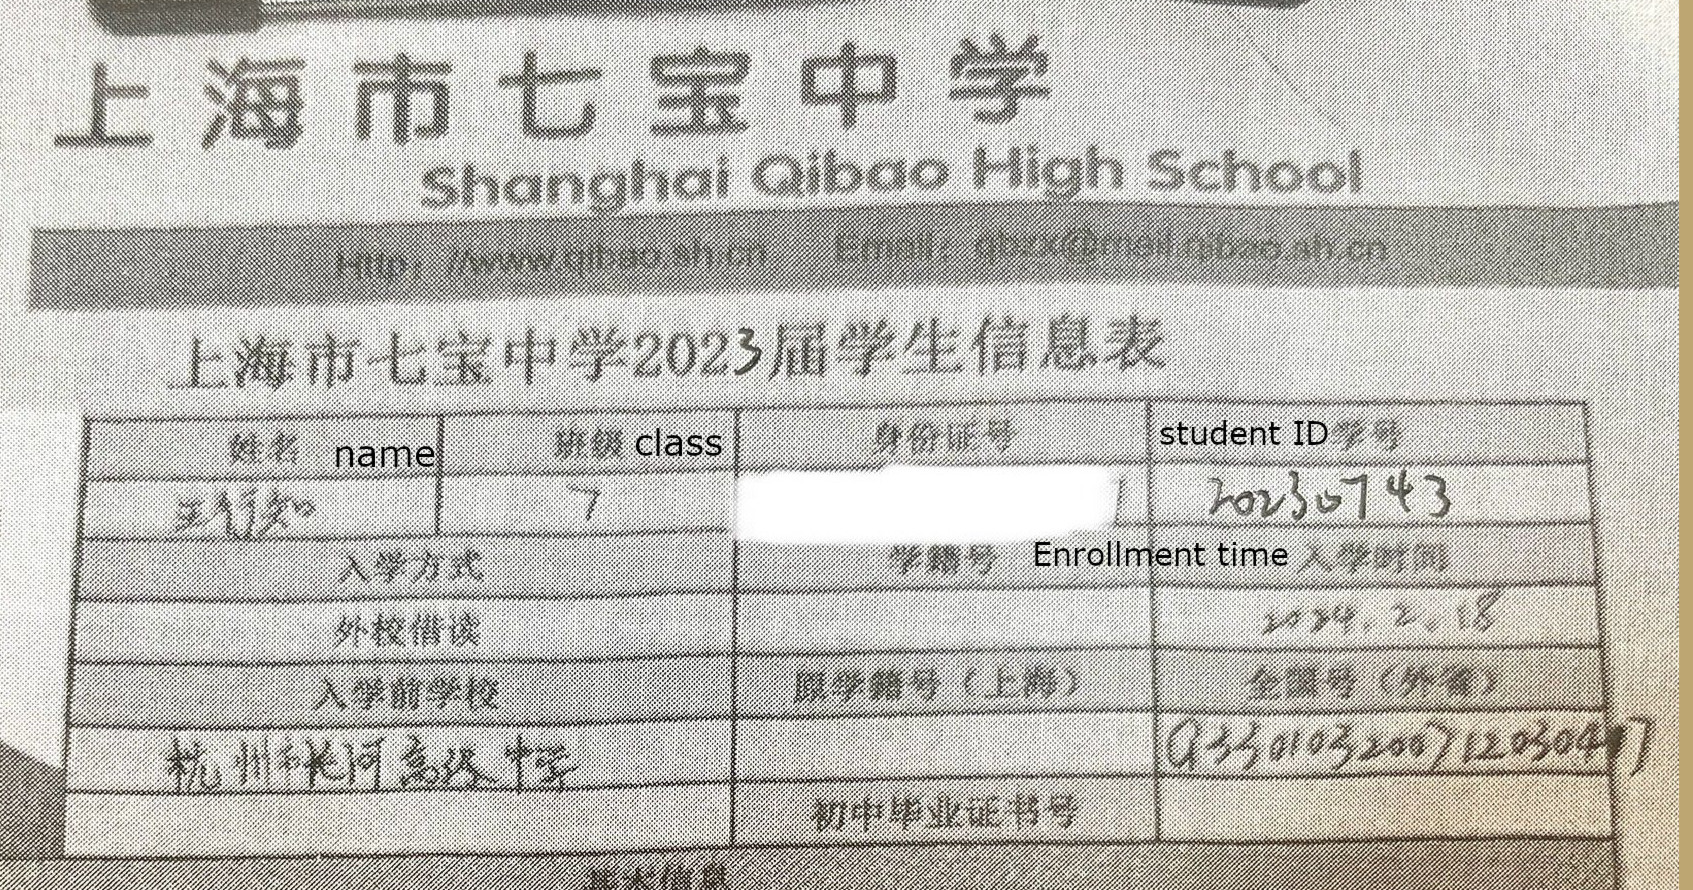 上海市七宝中学
Shanghai Qibao High School
Http://www.qibao.sh.cn Email: qbzx@mail.qibao.sh.cn
上海市七宝中学2023届学生信息表
姓名 name 班级 class 身份证号 student ID 学号
王行知 7 20230743
入学方式 学籍号 Enrollment time 入学时间
外校借读 2024.2.18
入学前学校 原学籍号（上海） 全国号（外省）
杭州 长河高级中学
初中毕业证书号
基本信息